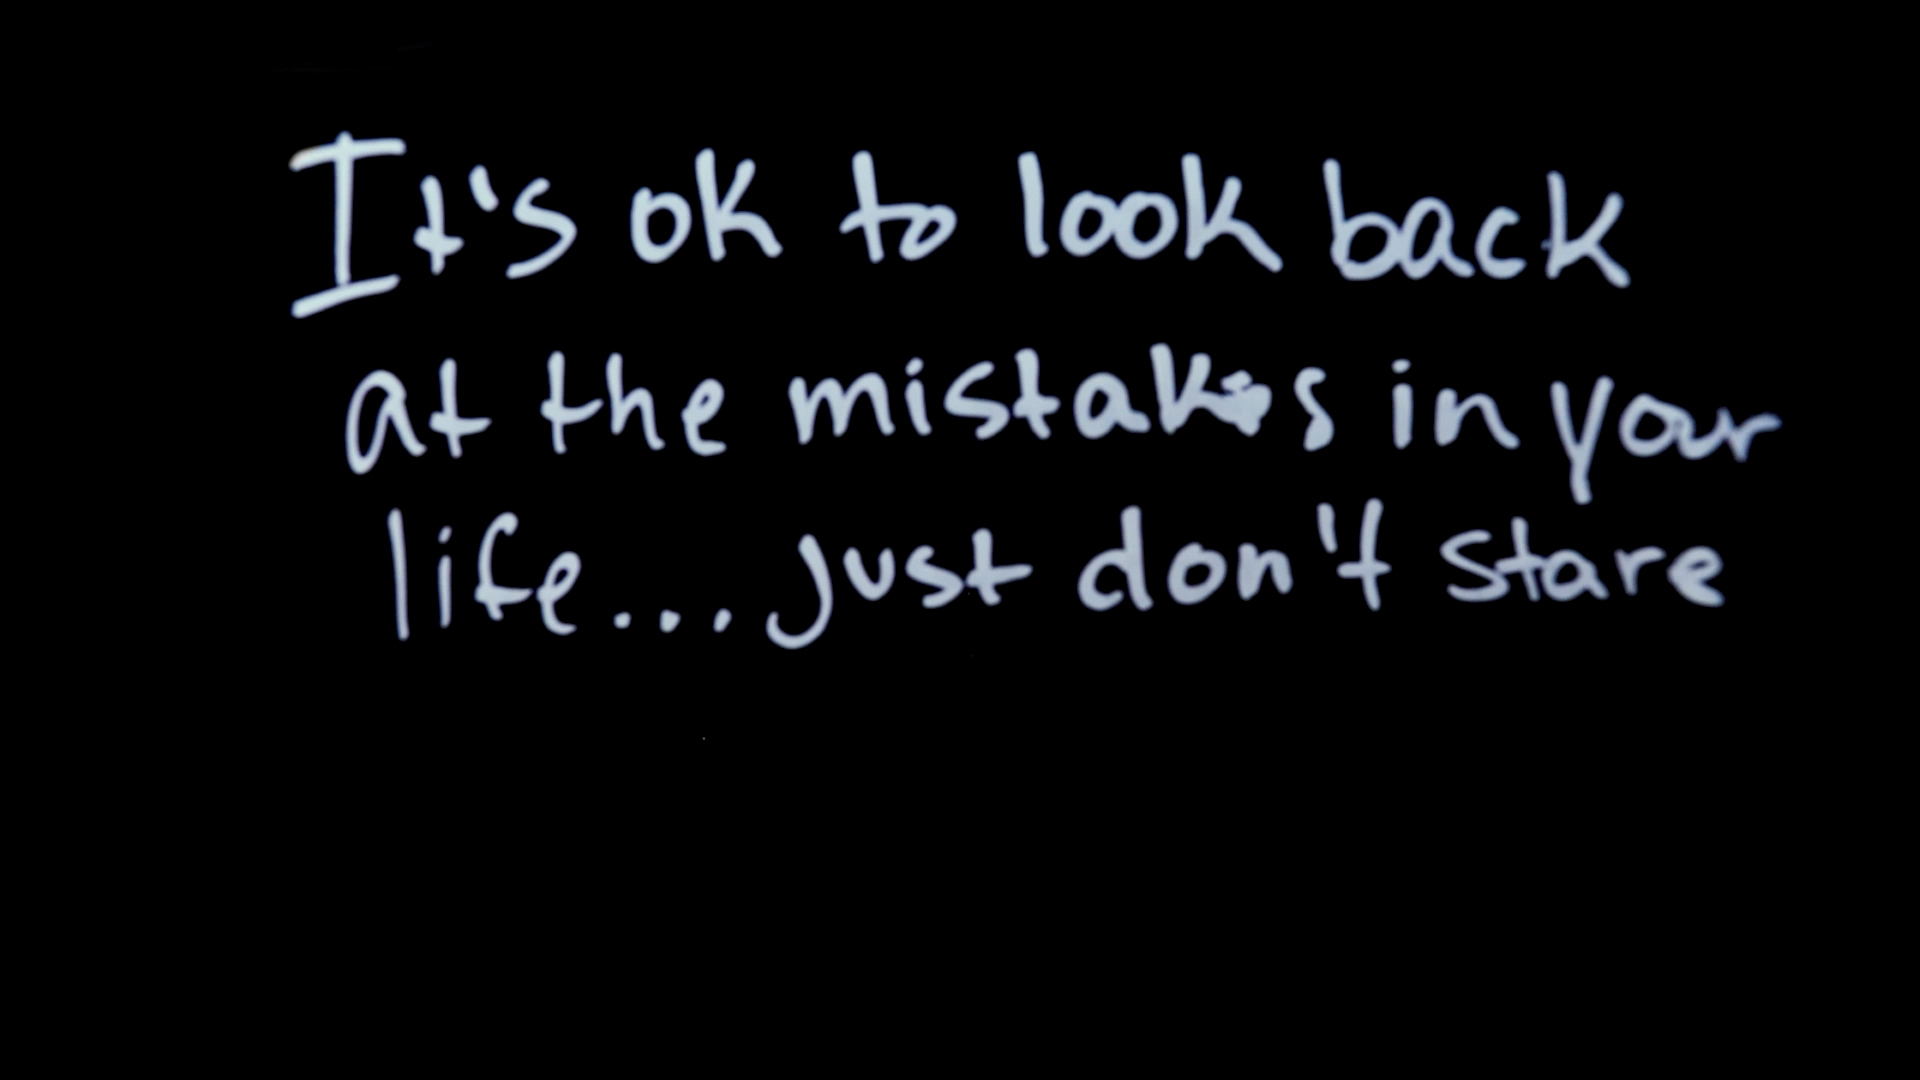 It's ok to look back
at the mistakes in your
life... just don't stare